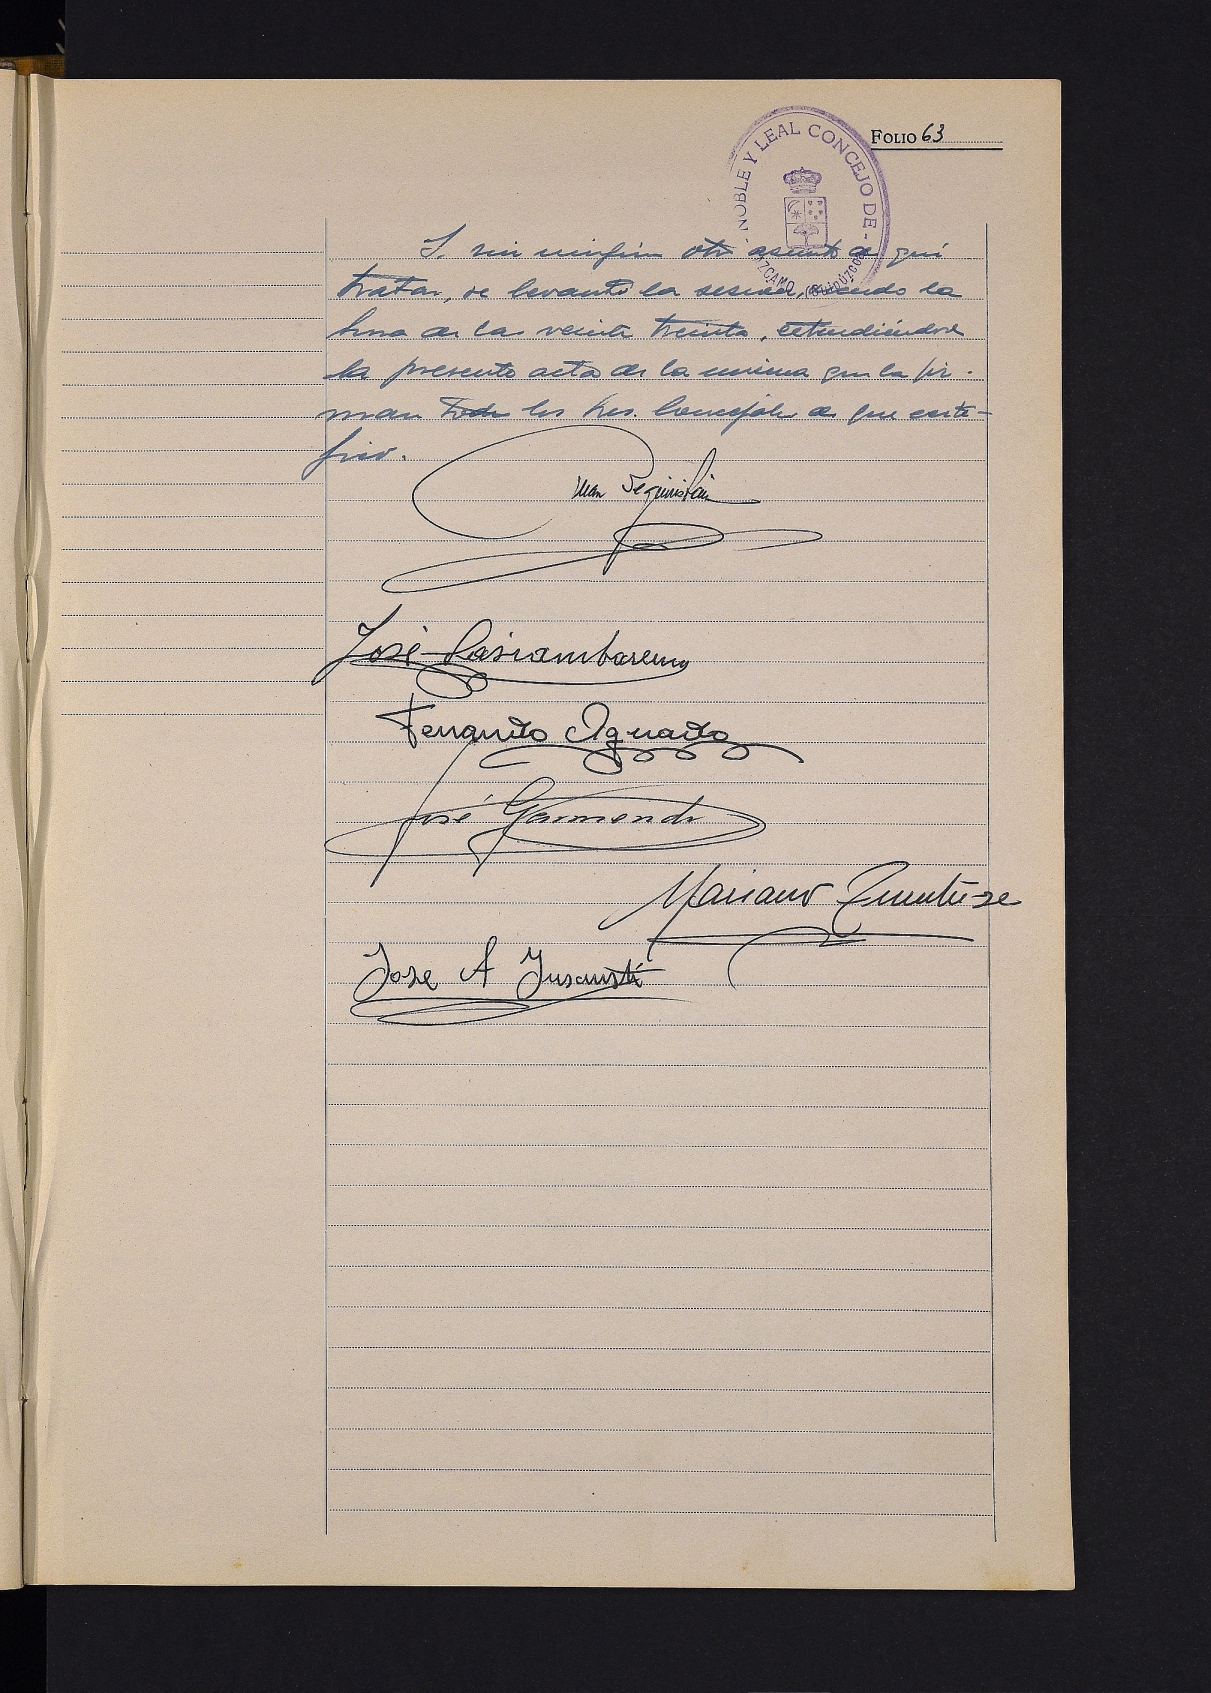 FOLIO 63
- NOBLE Y LEAL CONCEJO DE -
LAZCANO (GUIPÚZCOA)
Y sin ningún otro asunto de que
tratar, se levantó la sesión, siendo la
hora de las veinte treinta, extendiéndose
la presente acta de la misma que la fir-
man todos los Sres. Concejales de que certi-
fico.
Juan Seguristain
José
Fernando Aguado
José Garmendi
Mariano
Jose A